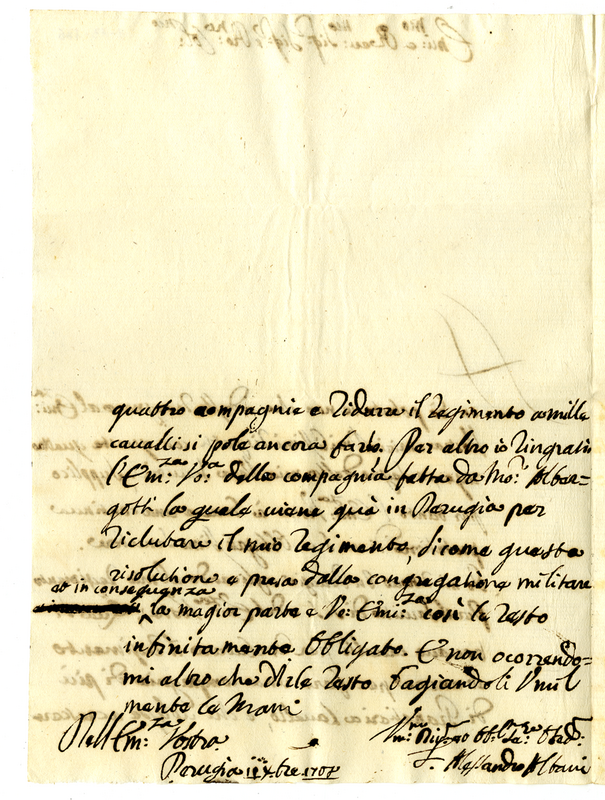 quattro compagnie e ridurre il regimento a mille
cavalli si pole ancora farlo. Per altro io ringratio
l'Em:za Vo:a della compagnia fatta da Mo:r Alber=
gotti la quale viene quà in Perugia per
riclutare il mio regimento, sicome questa
risolutione e presa dalla congregatione militare
et in conseguenza
la magior parte e Vo: Emi:za così le resto
infinitamente obligato. E non ocorrendo=
mi altro che dirle resto bagiandoli Vmil
mente le Mani
Dell Em:za Vostra
Perugia 7bre 1708
Alessandro Albani